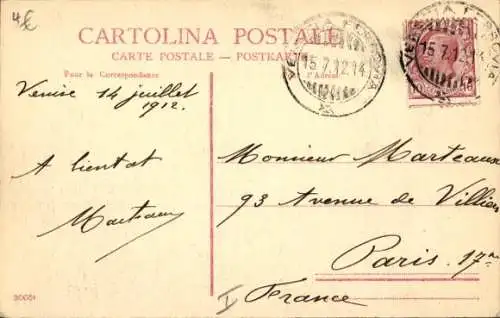 4€
CARTOLINA POSTALE
CARTE POSTALE – POSTKARTE
Pour la Correspondance
VENEZIA FERROVIA
15.7.12.14
VENEZIA FERROVIA
15.7.12.14
Venise 14 juillet
1912.
A bientot
Marteaux
Monsieur Marteaux
93 Avenue de Villiers
Paris. 17e
France
30051